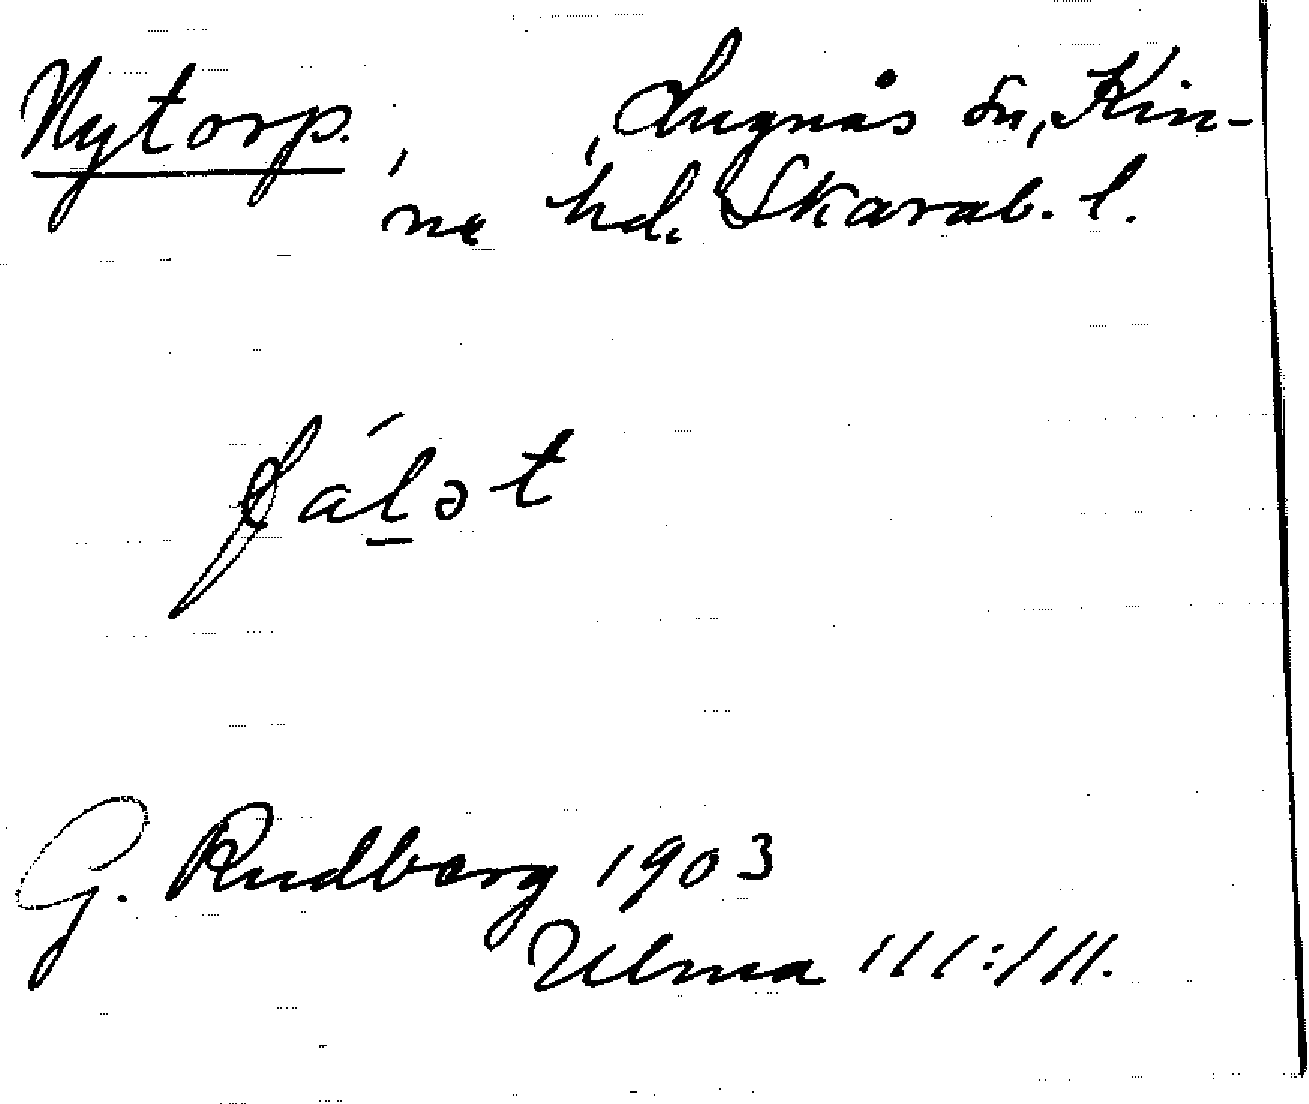 Nytorp. , , Lugnås sn, Kin-
ne hd. Skarab. l.
fa̍l̲ət
G. Rudberg 1903
Ulma 111:/11.